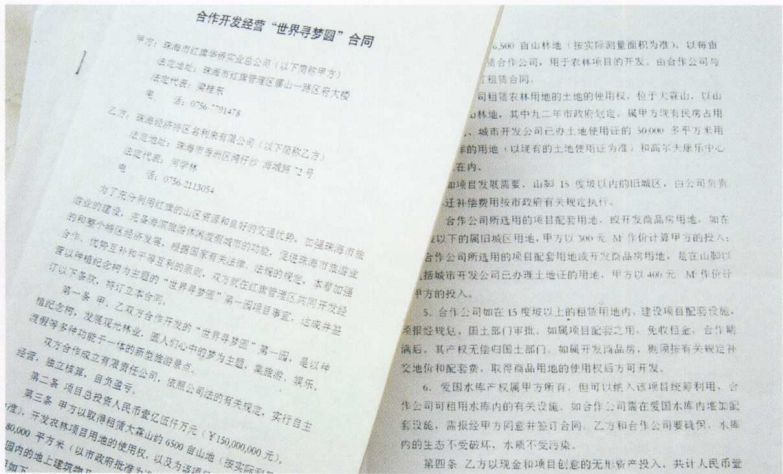 合作开发经营“世界寻梦园”合同
甲方：珠海市红旗华侨实业总公司（以下简称甲方）
法定地址：珠海市红旗管理区藤山一路区府大楼
法定代表：梁桂东
电 话：0756-7791478
乙方：珠海经济特区名利来有限公司（以下简称乙方）
法定地址：珠海市香洲区湾仔沙 海城路72号
法定代表：河学林
电 话：0756-2113054
为了充分利用红旗的山区资源和良好的交通优势，加强珠海市旅
游业的建设，完备海滨旅游休闲度假城市的功能，促进珠海市旅游业
的和整个特区经济发展，根据国家有关法律、法规的规定，本着加强
合作、优势互补和平等互利的原则，双方就在红旗管理区共同开发经
营以种植纪念树为主题的“世界寻梦园”第一园项目事宜，达成并签
订以下条款，特订立本合同。
第一条 甲、乙双方合作开发的“世界寻梦园”第一园，是以种
植纪念树，发展观光林业，圆人们心中的梦为主题，集旅游、娱乐、
渡假等多种功能于一体的新型旅游景点。
双方合作成立有限责任公司，依照公司法的有关规定，实行自主
经营，独立核算，自负盈亏。
第二条 项目总投资人民币壹亿伍仟万元（￥150,000,000元）。
第三条 甲方以取得租赁大霖山约6500亩山林地（按实际测
准）、开发农林项目用地的使用权，以及为该项
80,000平方米（以市政府批准为
园内的地上建筑物
6,500亩山林地（按实际测量面积为准），以每亩
合作公司，用于农林项目的开发。由合作公司与
租赁合同。
司租赁农林用地的土地的使用权，位于大霖山，以山
山林地，其中九二年市政府划定，属甲方现有民房占用
、城市开发公司已办土地使用证的50,000多平方米用
的用地（以现有的土地使用证为准）和高尔夫康乐中心
在内。
如项目发展需要，山脚15度坡以内的旧城区，由公司负责
迁补偿费用按市政府有关规定执行。
合作公司所选用的项目配套用地，或开发商品房用地，如在
以下的属旧城区用地，甲方以300元/M²作价计算甲方的投入；
合作公司所选用的项目配套用地或开发商品房用地，是在山脚以
括城市开发公司已办理土地证的用地，甲方以400元/M²作价计
甲方的投入。
5、合作公司如在15度坡以上的租赁用地内，建设项目配套设施，
须报经规划、国土部门审批。如属项目配套之用，免收租金，合作期
满后，其产权无偿归国土部门。如属开发商品房，则须按有关规定补
交地价和配套费，取得商品用地的使用权后方可开发。
6、爱国水库产权属甲方所有，但可以纳入该项目统筹利用，合
作公司可租用水库内的有关设施。如合作公司需在爱国水库内增加配
套设施，需报经甲方同意并签订合同。乙方和合作公司要确保，水库
内的生态不受破坏，水质不受污染。
第四条 乙方以现金和项目创意的无形资产投入，共计人民币壹